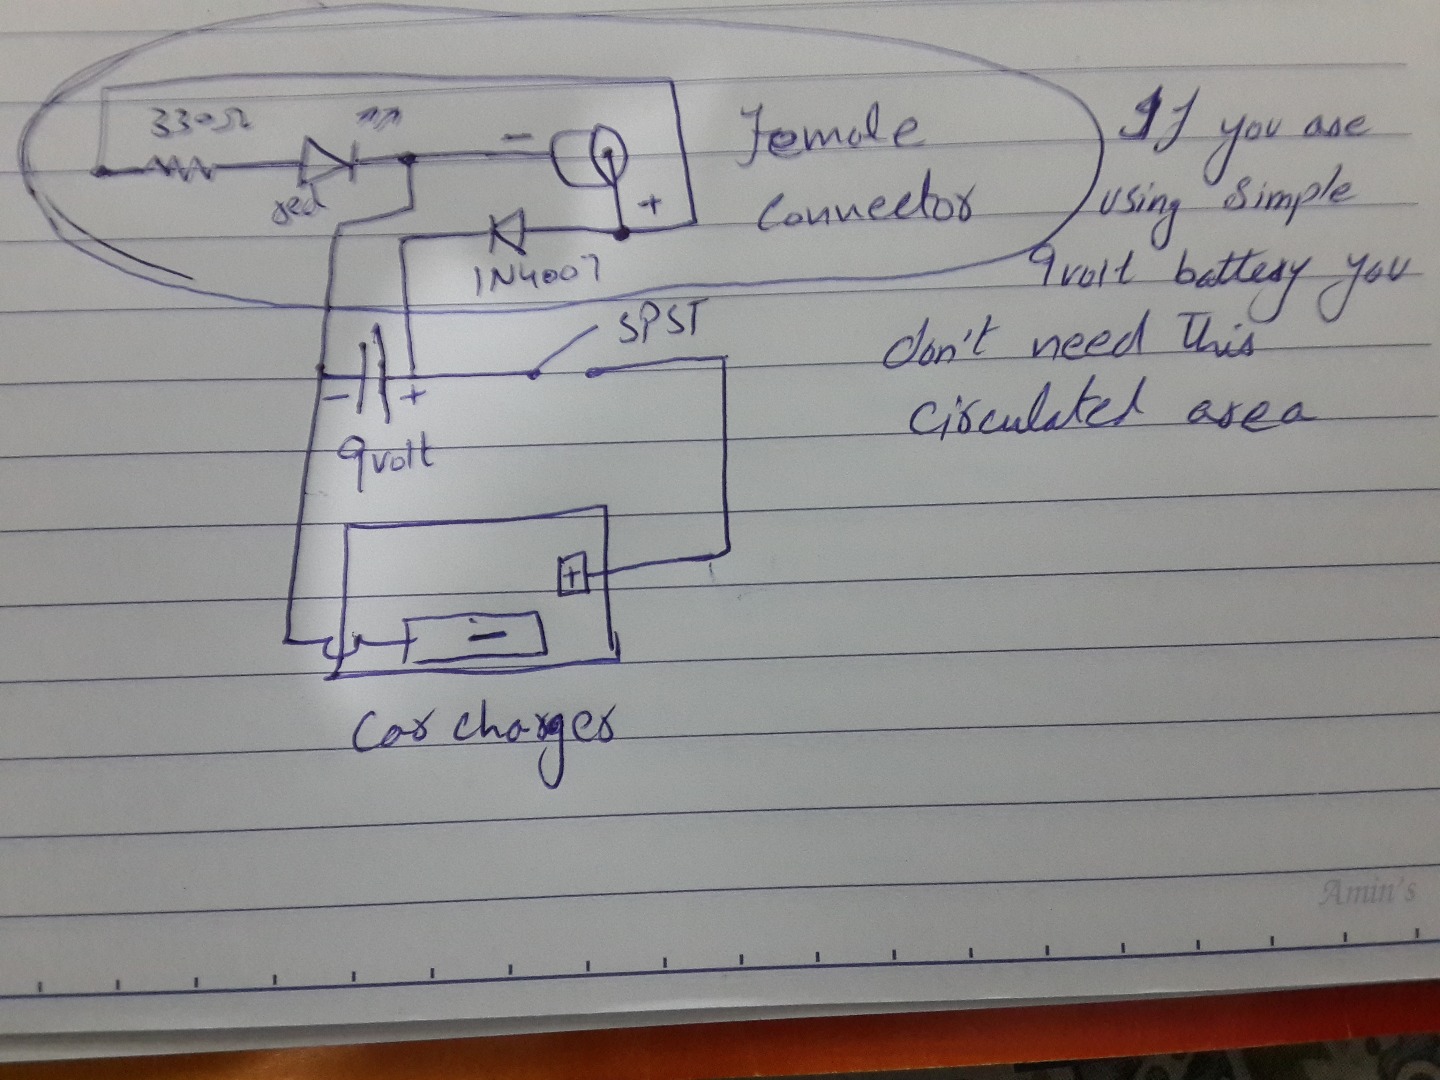 330Ω
red
−
+
Female
Connector
1N4007
If you are
using simple
9volt battery you
don't need This
circulated area
SPST
− +
9volt
+
−
Car charger
Amin's